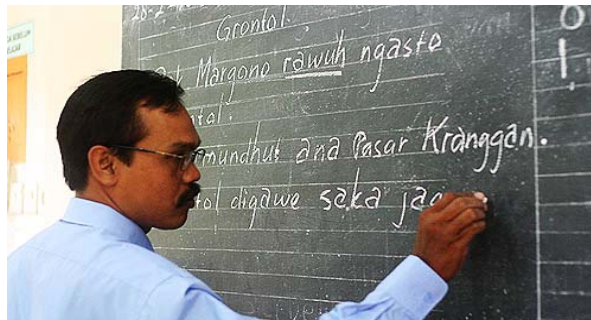 Grontol.
Margono rawuh ngasto
mundhut ana Pasar Kranggan.
digawe saka